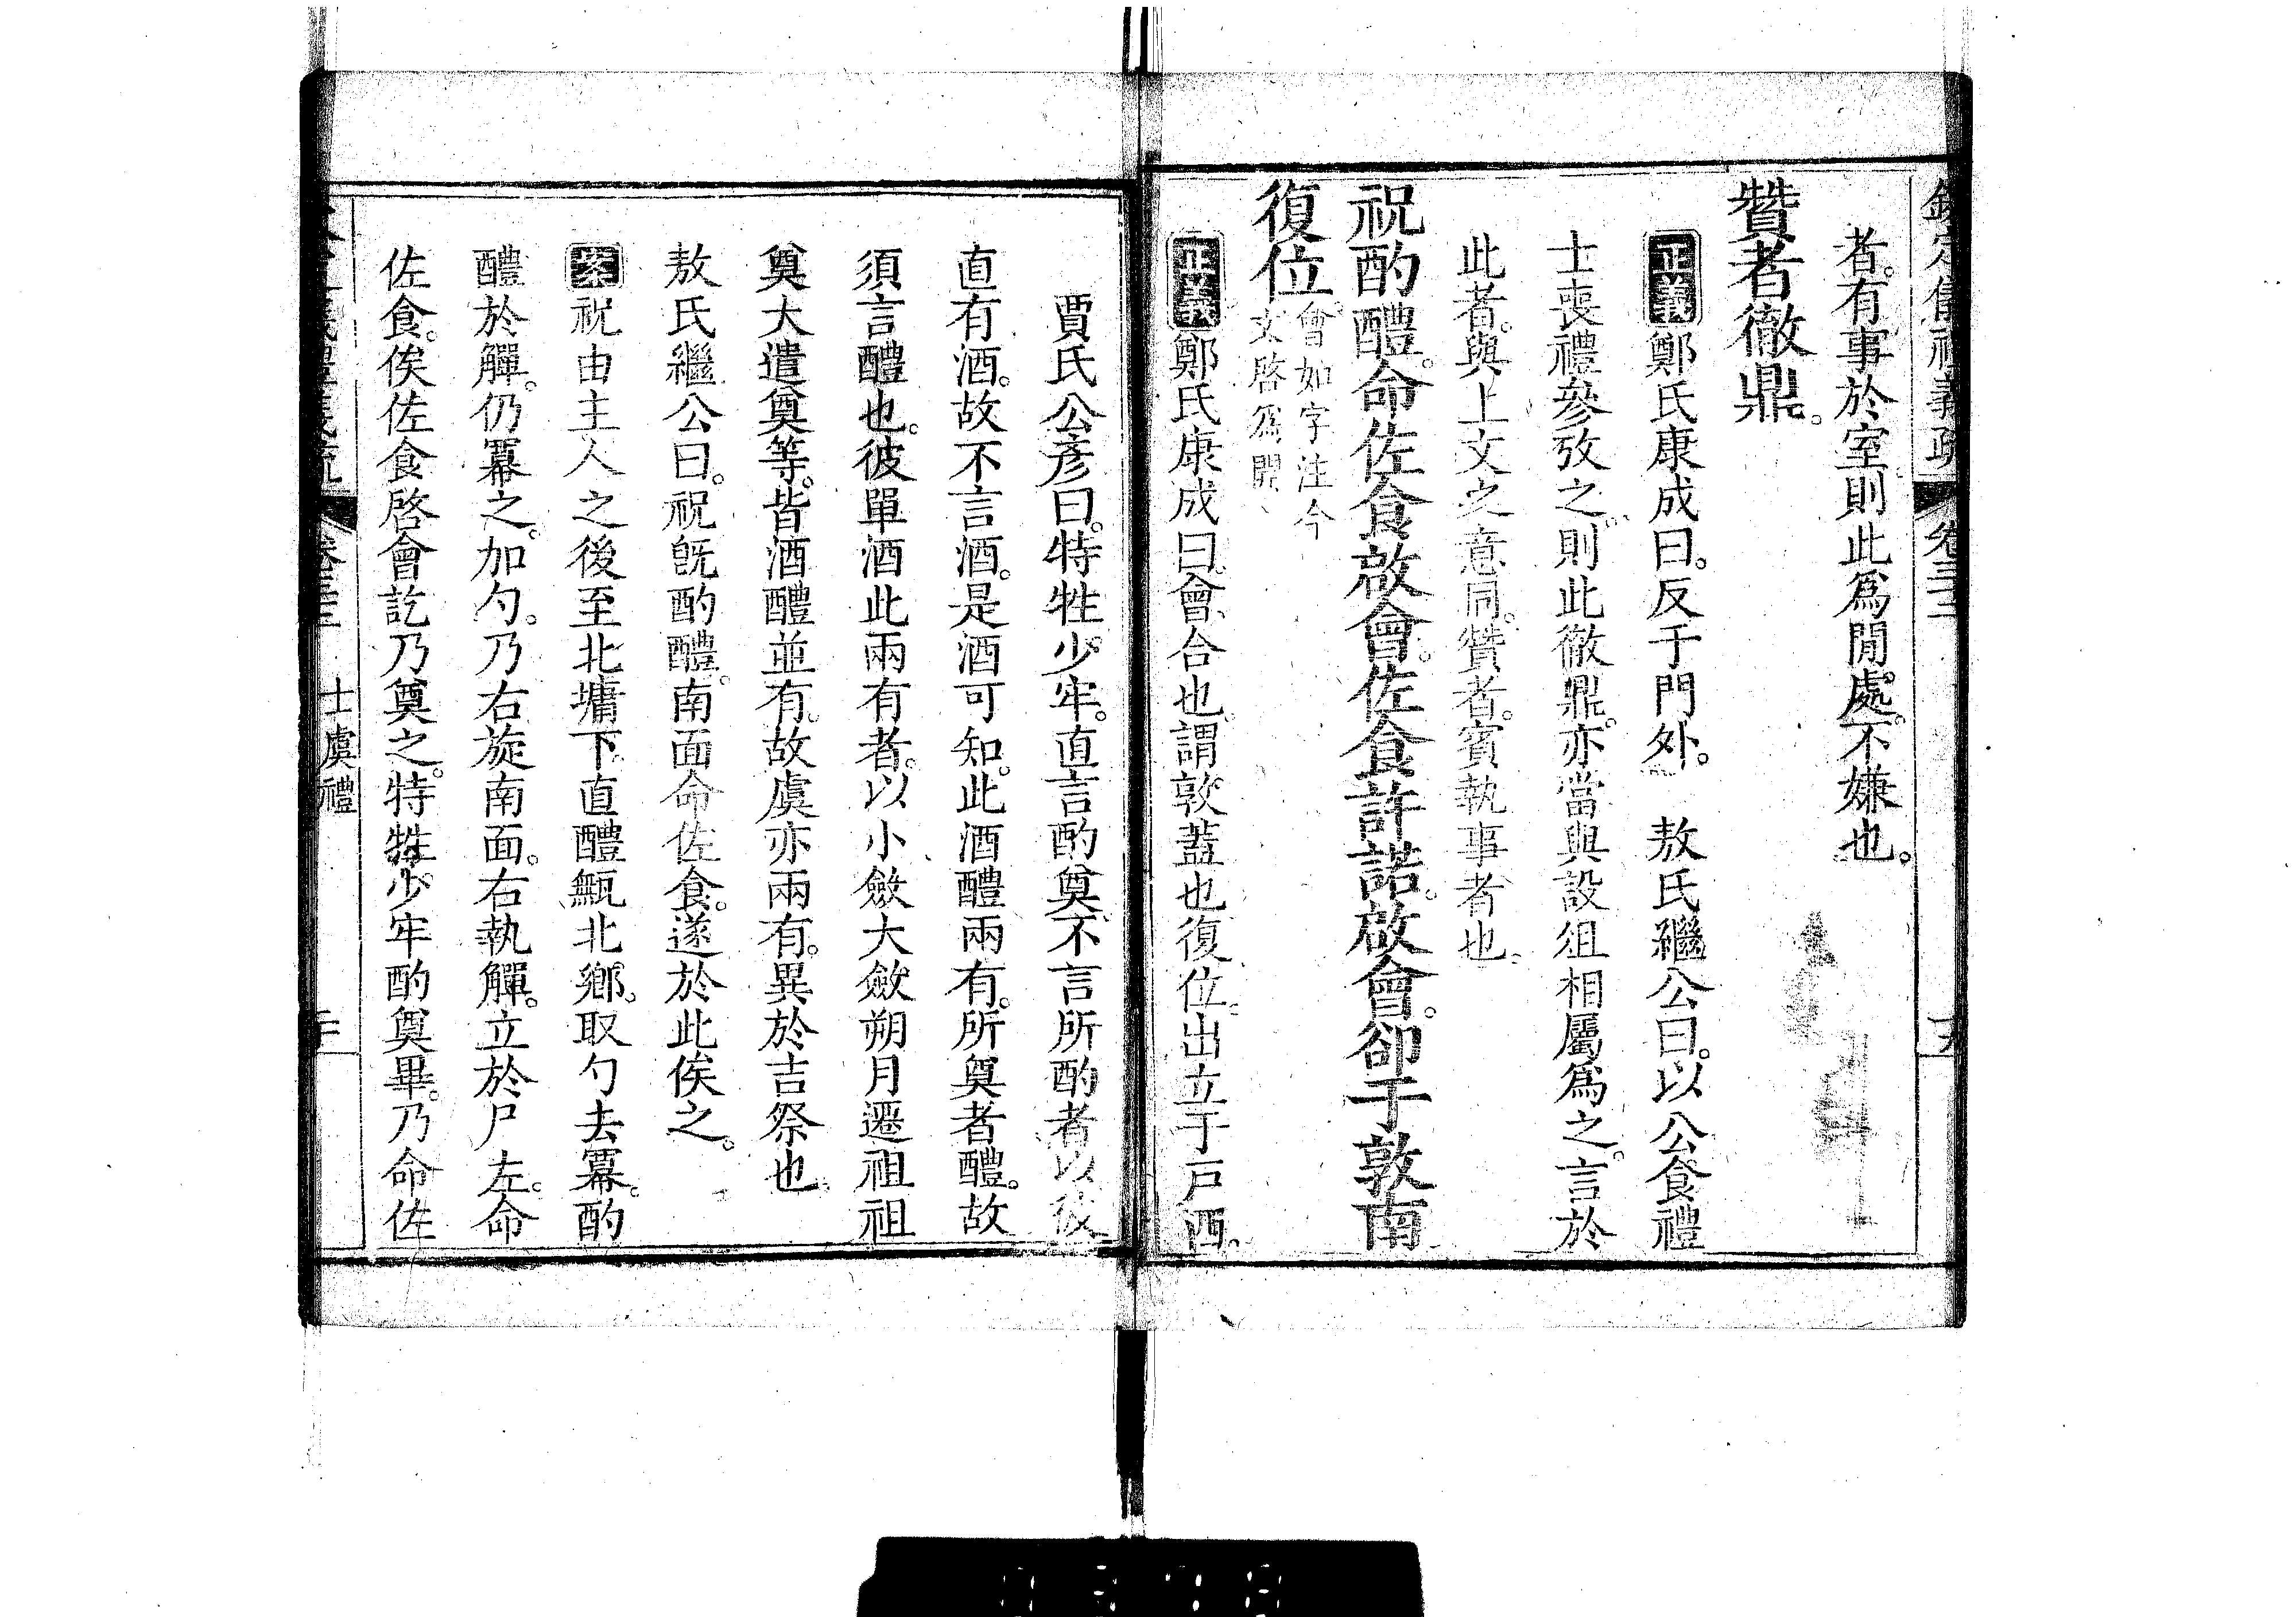 欽定儀禮義疏 卷三十三
者。有事於室。則此爲閒處。不嫌也。
贊者徹鼎。
正義鄭氏康成曰。反于門外。 敖氏繼公曰。以公食禮
士喪禮參攷之。則此徹鼎。亦當與設俎相屬爲之。言於
此者。與上文之意同。贊者。賓執事者也。
祝酌醴。命佐食啟會。佐食許諾。啟會。卻于敦南
復位。會如字注今文啓爲開
正義鄭氏康成曰。會合也。謂敦蓋也復位。出立于戸西。
賈氏公彥曰。特牲少牢。直言酌奠。不言所酌者。以彼
直有酒。故不言酒。是酒可知。此酒醴兩有。所奠者醴。故
須言醴也。彼單酒此兩有者。以小斂大斂朔月遷祖祖
奠大遣奠等。皆酒醴並有。故虞亦兩有。異於吉祭也。
敖氏繼公曰。祝旣酌醴。南面命佐食。遂於此俟之。
案祝由主人之後至北墉下。直醴甒北鄉。取勺去冪。酌
醴於觶。仍冪之。加勺。乃右旋南面。右執觶。立於尸左。命
佐食。俟佐食啓會訖乃奠之。特牲少牢酌奠畢。乃命佐
儀禮義疏 卷三十三 士虞禮